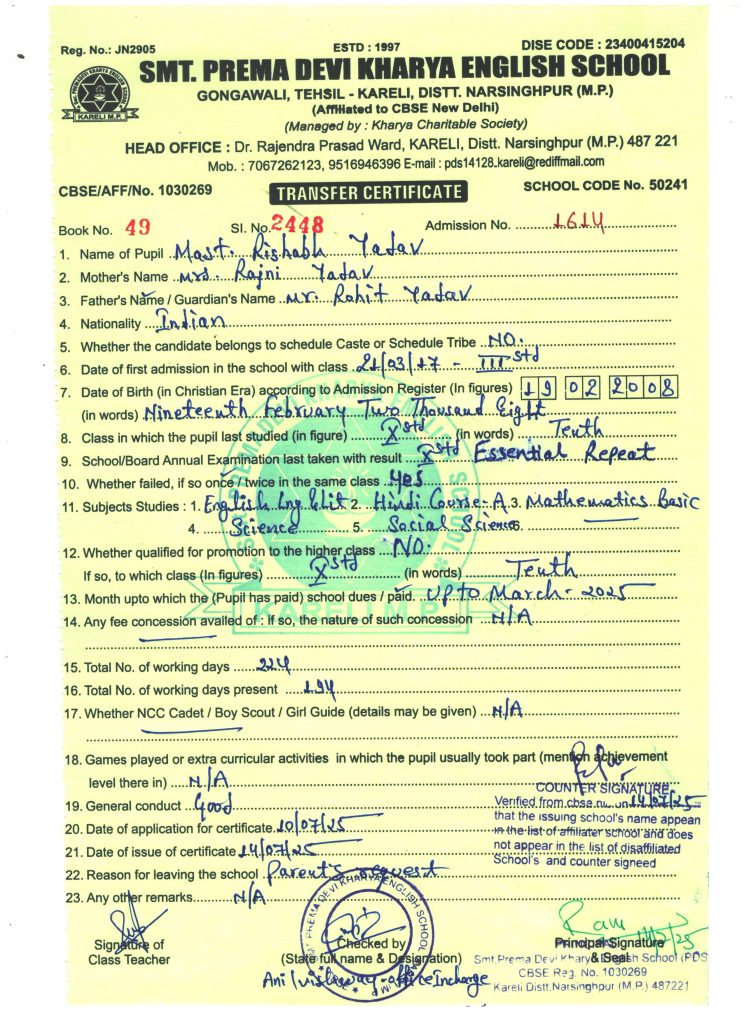 Reg. No.: JN2905 ESTD : 1997 DISE CODE : 23400415204
SMT. PREMA DEVI KHARYA ENGLISH SCHOOL
GONGAWALI, TEHSIL - KARELI, DISTT. NARSINGHPUR (M.P.)
(Affiliated to CBSE New Delhi)
(Managed by : Kharya Charitable Society)
KARELI M.P.
HEAD OFFICE : Dr. Rajendra Prasad Ward, KARELI, Distt. Narsinghpur (M.P.) 487 221
Mob. : 7067262123, 9516946396 E-mail : pds14128.kareli@rediffmail.com
CBSE/AFF/No. 1030269 TRANSFER CERTIFICATE SCHOOL CODE No. 50241
Book No. 49 Sl. No. 2448 Admission No. 1614
1. Name of Pupil Mast. Rishabh Yadav
2. Mother's Name Mrs. Rajni Yadav
3. Father's Name / Guardian's Name Mr. Rohit Yadav
4. Nationality Indian
5. Whether the candidate belongs to schedule Caste or Schedule Tribe NO.
6. Date of first admission in the school with class 21/03/17 - III std
7. Date of Birth (in Christian Era) according to Admission Register (In figures) 19 02 2008
(in words) Nineteenth February Two Thousand Eight
8. Class in which the pupil last studied (in figure) X std (in words) Tenth
9. School/Board Annual Examination last taken with result X std Essential Repeat
10. Whether failed, if so once / twice in the same class Yes
11. Subjects Studies : 1. English Lng & Lit 2. Hindi Course-A 3. Mathematics Basic
4. Science 5. Social Science 6.
12. Whether qualified for promotion to the higher class NO.
If so, to which class (In figures) X std (in words) Tenth
13. Month upto which the (Pupil has paid) school dues / paid. Upto March-2025
14. Any fee concession availed of : if so, the nature of such concession N/A
KARELI M.P.
15. Total No. of working days 224
16. Total No. of working days present 194
17. Whether NCC Cadet / Boy Scout / Girl Guide (details may be given) N/A
18. Games played or extra curricular activities in which the pupil usually took part (mention achievement
level there in) N/A
COUNTER SIGNATURE
19. General conduct Good
Verified from cbse.nic on 14/07/25
that the issuing school's name appear
20. Date of application for certificate 10/07/25
in the list of affiliater school and does
21. Date of issue of certificate 14/07/25
not appear in the list of disaffiliated
School's and counter signeed
22. Reason for leaving the school Parent's request
23. Any other remarks N/A
SMT PREMA DEVI KHARYA ENGLISH SCHOOL
Signature of
Class Teacher
Checked by
(State full name & Designation)
Principal Signature
& Seal
Smt.Prema Devi Kharya English School (PDS
CBSE Reg. No. 1030269
Kareli Distt.Narsinghpur (M.P.) 487221